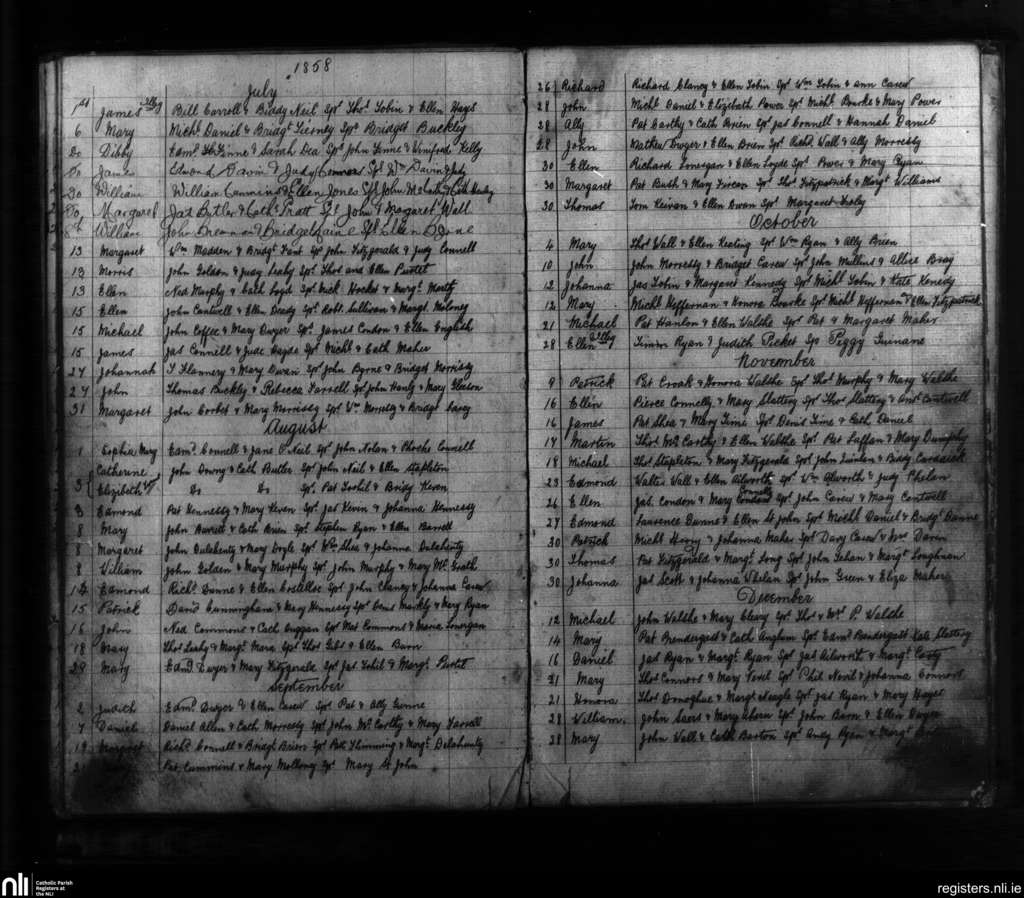 1858
July
1st James Illeg Bill Carroll & Biddy Neil Sps Thos Tobin & Ellen Hays
6 Mary Michl Daniel & Bridgt Tierney Sps Bridget Buckley
Do Dibby Edmd & Sarah Dea Sps John & Winifred Kelly
Do James Edmond Davin & Judy Connors Sps Wm Davin & Judy
Do William William Cummins & Ellen Jones Sps John McCarthy &
Do Margaret Jas Butler & Cathe Pratt Sps John & Margaret Wall
8th William John Brennan & Bridget Sps Ellen
13 Margaret Wm Madden & Bridgt Fant Sps John Fitzgerald & Judy Connell
13 Morris John Golden & Judy Leahy Sps Thos and Ellen Purtet
13 Ellen Ned Murphy & Cath Loyd Sps Mick Hocket & Margt
15 Ellen John Cantwell & Ellen Deady Sps Robt Sullivan & Margt Molony
15 Michael John Coffee & Mary Dwyer Sps James Condon & Ellen English
15 James Jas Connell & Jude Hayde Sps Michl & Cath Maher
27 Johannah T Flannery & Mary Dwan Sps John Byrne & Bridget Morrissy
27 John Thomas Buckley & Rebecca Farrell Sps John Hanly & Mary Gleeson
31 Margaret John Corbet & Mary Morrissy Sps Wm Morressy & Bridgt
August
1 Sophia Mary Edmd Connell & Jane O'Neil Sps John Nolan & Phoebe Connell
3 Catherine John Downy & Cath Butler Sps John Neil & Ellen Stapleton
Elizibeth Do Do Sps Pat Tochil & Bridy Keven
3 Edmond Pat Hennessy & Mary Keven Sps Jas Kevin & Johanna Hennessy
8 Mary John Barrett & Cath Brien Sps Stephen Ryan & Ellen Barrett
8 Margaret John Dulehenty & Mary Doyle Sps Wm Shea & Johanna Delehenty
8 William John Golden & Mary Murphy Sps John Murphy & Mary Mc Grath
12 Edmond Richd Dunne & Ellen Costelloe Sps John Clancy & Johanna Carew
15 Patrick David Cunningham & Mary Hennessy Sps Denis Markly & Mary Ryan
16 John Ned Commons & Cath Duggan Sps Mat Commons & Maria Lonergan
18 Mary Thos Leahy & Margt Mara Sps Thos Gibs & Ellen Barn
29 Mary Edmd Dwyer & Mary Fitzgerald Sps Jas Tohil & Margt Purtet
September
2 Judith Edmd Dwyer & Ellen Carew Sps Pat & Ally Gunne
7 Daniel Daniel Allen & Cath Morressy Sps John Mc Carthy & Mary Farrell
19 Margaret Richd Connell & Bridgt Brien Sps Patk Flumming & Margt Delahunty
Pat Cummins & Mary Mollony Sps Mary St John
26 Richard Richard Clancy & Ellen Tobin Sps Wm Tobin & Ann Carew
28 John Michl Daniel & Elizebeth Power Sps Michl Bourke & Mary Power
28 Ally Pat Carthy & Cath Brien Sps Jas Connell & Hannah Daniel
28 John Mathew Dwyer & Ellen Brien Sps Richd Wall & Ally Morressy
30 Ellen Richard Lonergan & Ellen Loyde Sps Power & Mary Ryan
30 Margaret Pat Bush & Mary Sps Thos Fitzpatrick & Margt Williams
30 Thomas Tom Keivan & Ellen Dwan Sps Margaret
October
4 Mary Thos Wall & Ellen Keating Sps Wm Ryan & Ally Brien
10 John John Morressy & Bridget Carew Sps John Mullins & Allice Bray
12 Johanna Jas Tobin & Margaret Kennedy Sps Michl Tobin & Kate Kenedy
12 Mary Michl Heffernan & Honora Bourke Sps Michl Heffernan & Ellen Fitzpatrick
21 Michael Pat Hanlon & Ellen Walshe Sps Pat & Margaret Maher
28 Ellen Illeg Ryan & Judith Picket Sps Peggy Guinane
November
9 Patrick Pat Croak & Honora Walshe Sps Thos Murphy & Mary Walshe
16 Ellen Pierce Connelly & Mary Slattery Sps Thos Slattery & Ans Cantwell
16 James Pat Shea & Mary Sps Denis & Cath Daniel
17 Martin Thos Mc Carthy & Ellen Walshe Sps Pat Laffan & Mary Dunphy
18 Michael Thos Stapleton & Mary Fitzgerald Sps John Quinlan & Biddy
23 Edmond Walter Wall & Ellen Ailworth Sps Wm Allworth & Judy Phelan
26 Ellen Jas Condon & Mary Connelly Sps John Carew & Mary Cantwell
27 Edmond Laurence Dunne & Ellen St John Sps Michl Daniel & Bridgt Dunne
30 Patrick Michl & Johanna Maher Sps Davy Carew & Mrs Davin
30 Thomas Pat Fitzgerald & Margt Long Sps John Tehan & Margt Loughnan
30 Johanna Jas Scott & Johanna Whelan Sps John Green & Eliza Maher
December
12 Michael John Walshe & Mary Cleary Sps Thos & Mrs P. Walshe
14 Mary Pat Prendergast & Cath Anglum Sps Edmd Bendergast Kate Slattery
16 Daniel Jas Ryan & Margt Ryan Sps Jas Ailworth & Margt Casty
21 Mary Thos Connors & Mary Nevil Sps Phil Nevil & Johanna Connors
21 Honora Thos Donoghue & Margt Neagle Sps Jas Ryan & Mary Hayes
28 William John Sears & Mary Ahern Sps John Barn & Ellen Dwyer
28 Mary John Wall & Cath Barton Sps Andy Ryan & Margt
nli Catholic Parish
Registers at
the NLI
registers.nli.ie